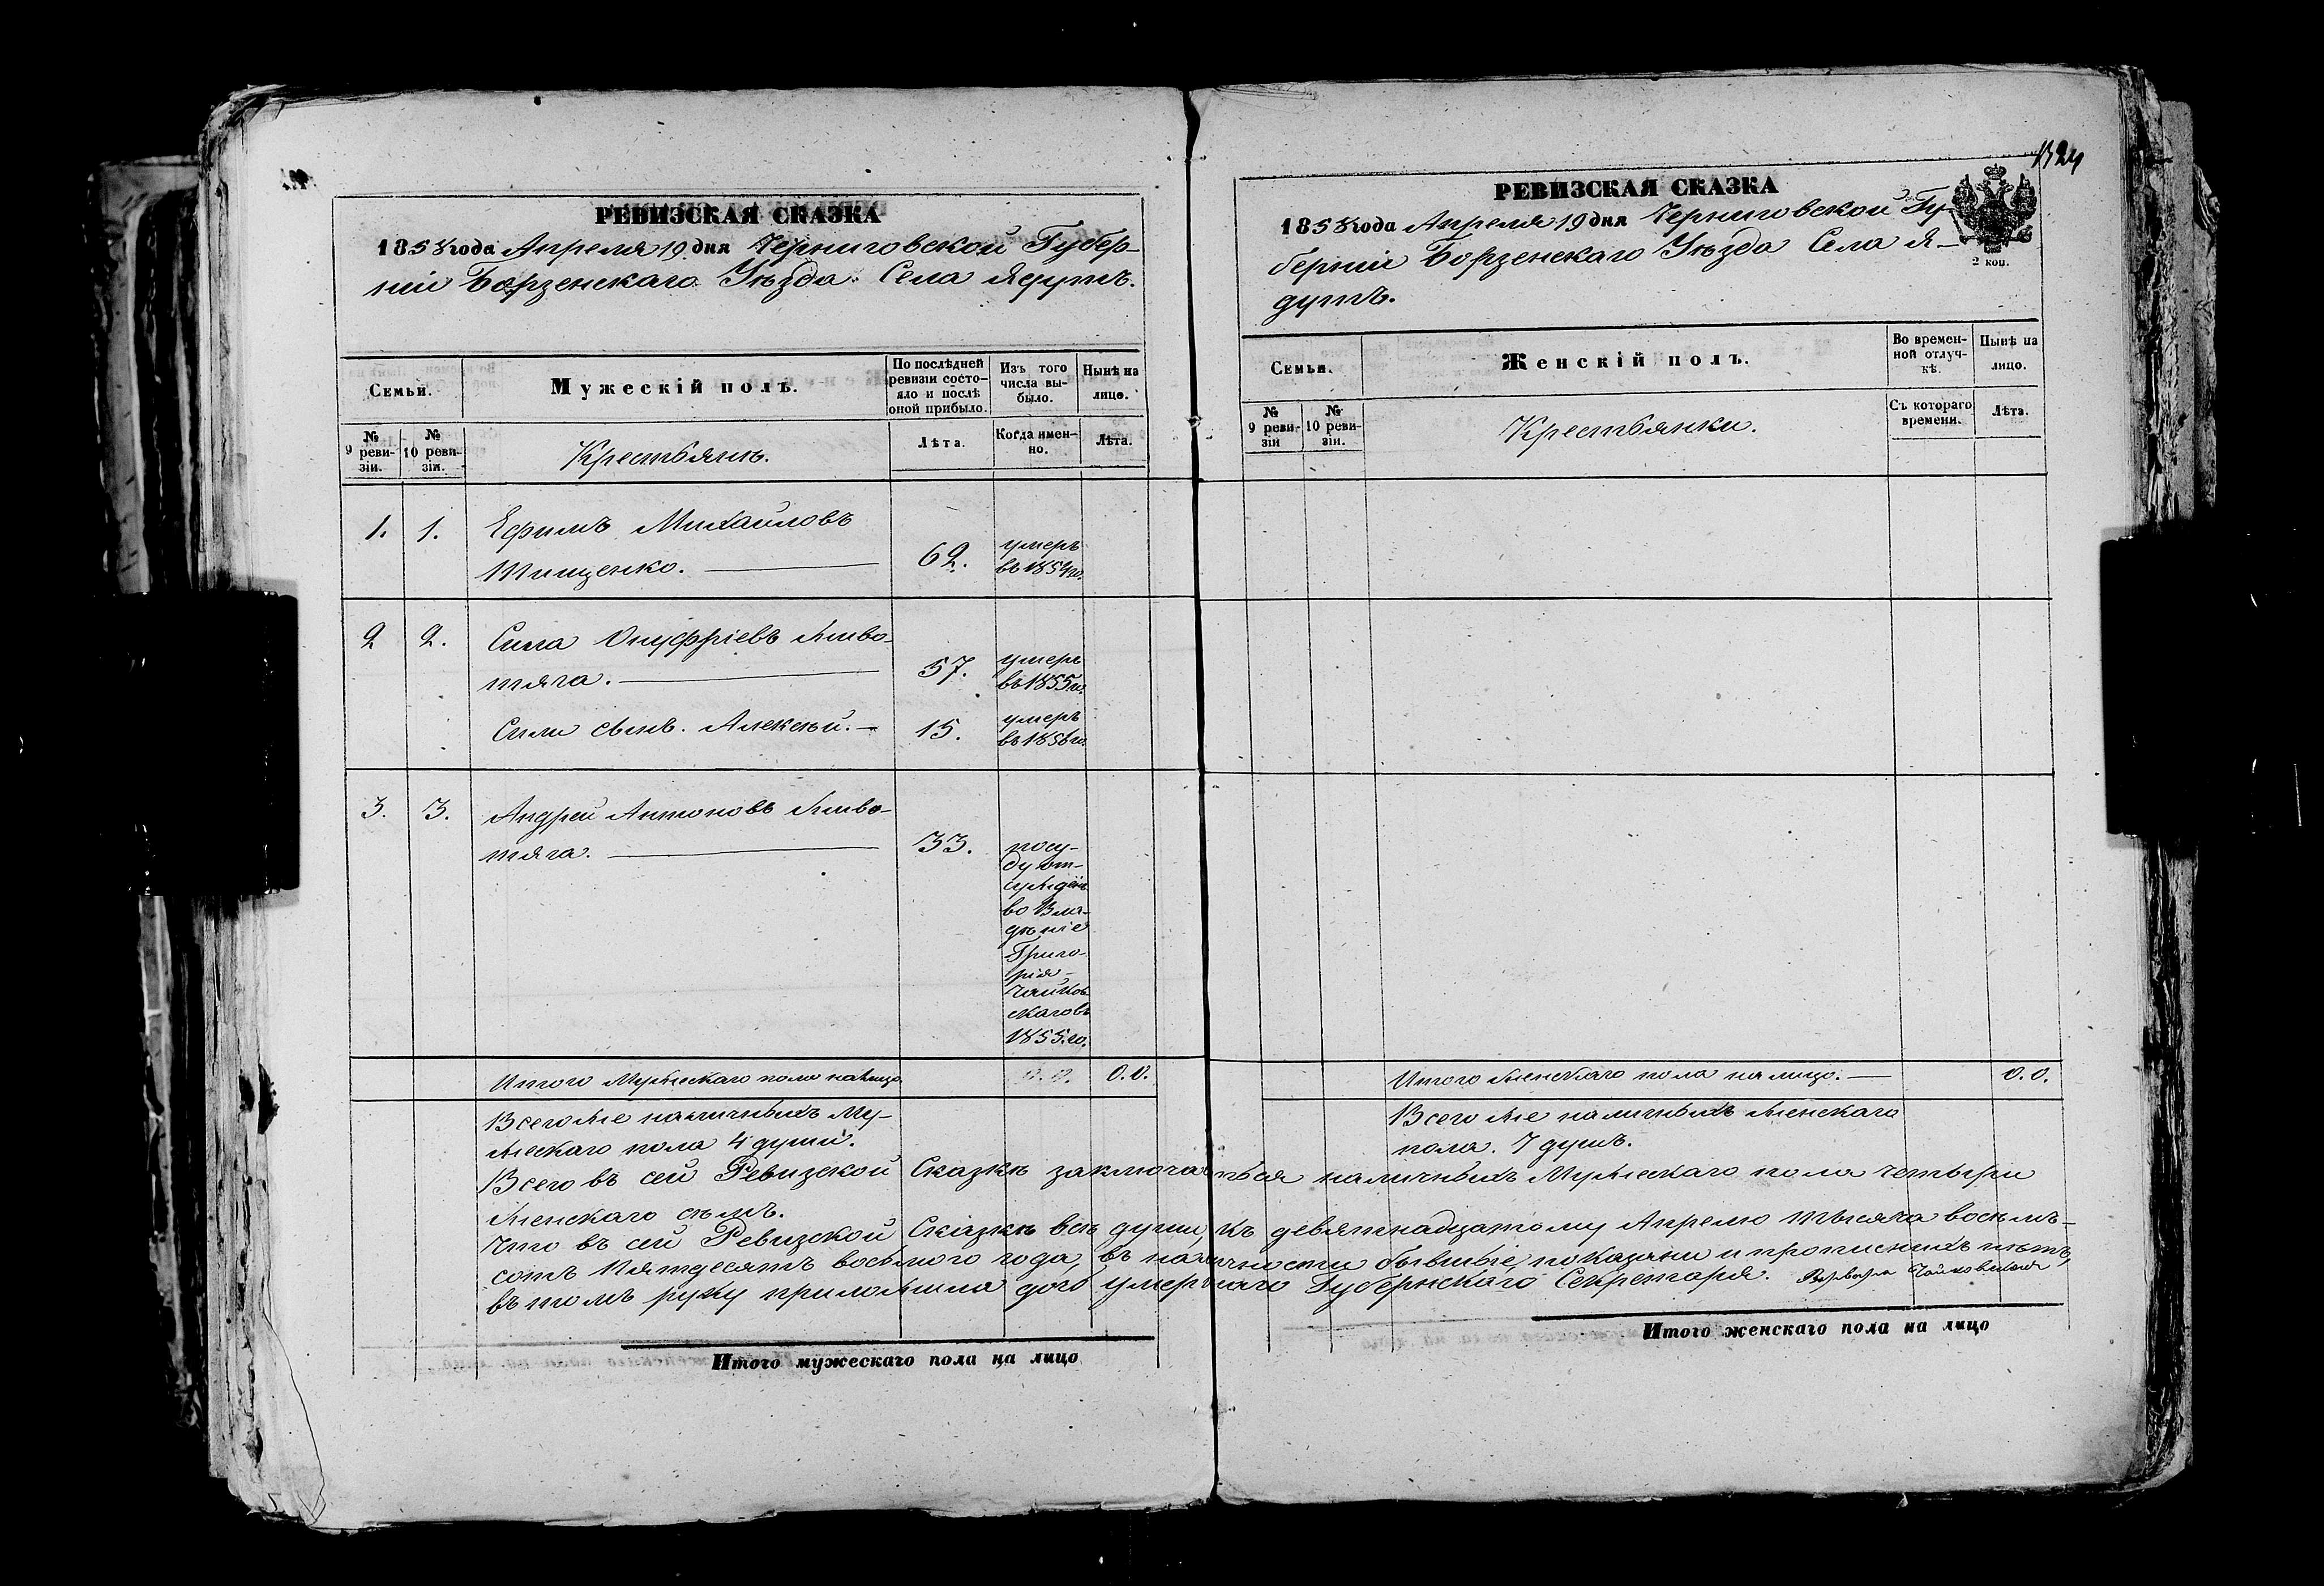 РЕВИЗСКАЯ СКАЗКА
1858 года Апреля 19 дня Черниговской Губер-
ніи Борзенскаго Уѣзда Села Ядутъ.
Семьи.
Мужескій полъ.
По послѣдней
ревизіи состо-
яло и послѣ
оной прибыло.
Изъ того
числа вы-
было.
Нынѣ на
лицо.
№
9 реви-
зіи.
№
10 реви-
зіи.
Крестьянъ.
Лѣта.
Когда имен-
но.
Лѣта.
1. 1. Ефимъ Михайловъ
Тищенко. 62. умеръ
въ 1854 го.
2 2. Сила Онуфріевъ Живо-
тяга. 57. умеръ
въ 1855 го.
Силы сынъ. Алексѣй. 15. умеръ
въ 1856 го.
3. 3. Андрей Антоновъ Живо-
тяга. 33. посу-
ду от-
сужденъ
во Вла-
дѣніе
Григо-
рія
Чайков
скаго въ
1855. го.
Итого Мужескаго пола на лицо. 0.0.
Всего же наличныхъ Му-
жескаго пола 4 души.
РЕВИЗСКАЯ СКАЗКА
1858 года Апреля 19 дня Черниговской Гу-
берніи Борзенскаго Уѣзда Села Я-
дутъ.
2 коп.
Семьи.
Женскій полъ.
Во времен-
ной отлуч-
кѣ.
Нынѣ на
лицо.
№
9 реви-
зіи
№
10 реви-
зіи.
Крестьянки.
Съ котораго
времени.
Лѣта.
Итого женскаго пола на лицо. 0.0.
Всего же наличныхъ женскаго
пола. 7 душъ.
Всего въ сей Ревизской Сказкѣ заключаться наличныхъ Мужескаго пола четыри
женскаго семъ.
Что въ сей Ревизской Сказкѣ всѣ души, къ девятнадцатому Апрелю тысяча восемъ-
сотъ пятдесятъ восьмого года, въ наличности бывшіе, показаны и прописныхъ нѣтъ,
въ томъ руку приложила дочь умершаго Губернскаго Секретаря. Варвара Чайковская
Итого мужескаго пола на лицо
Итого женскаго пола на лицо